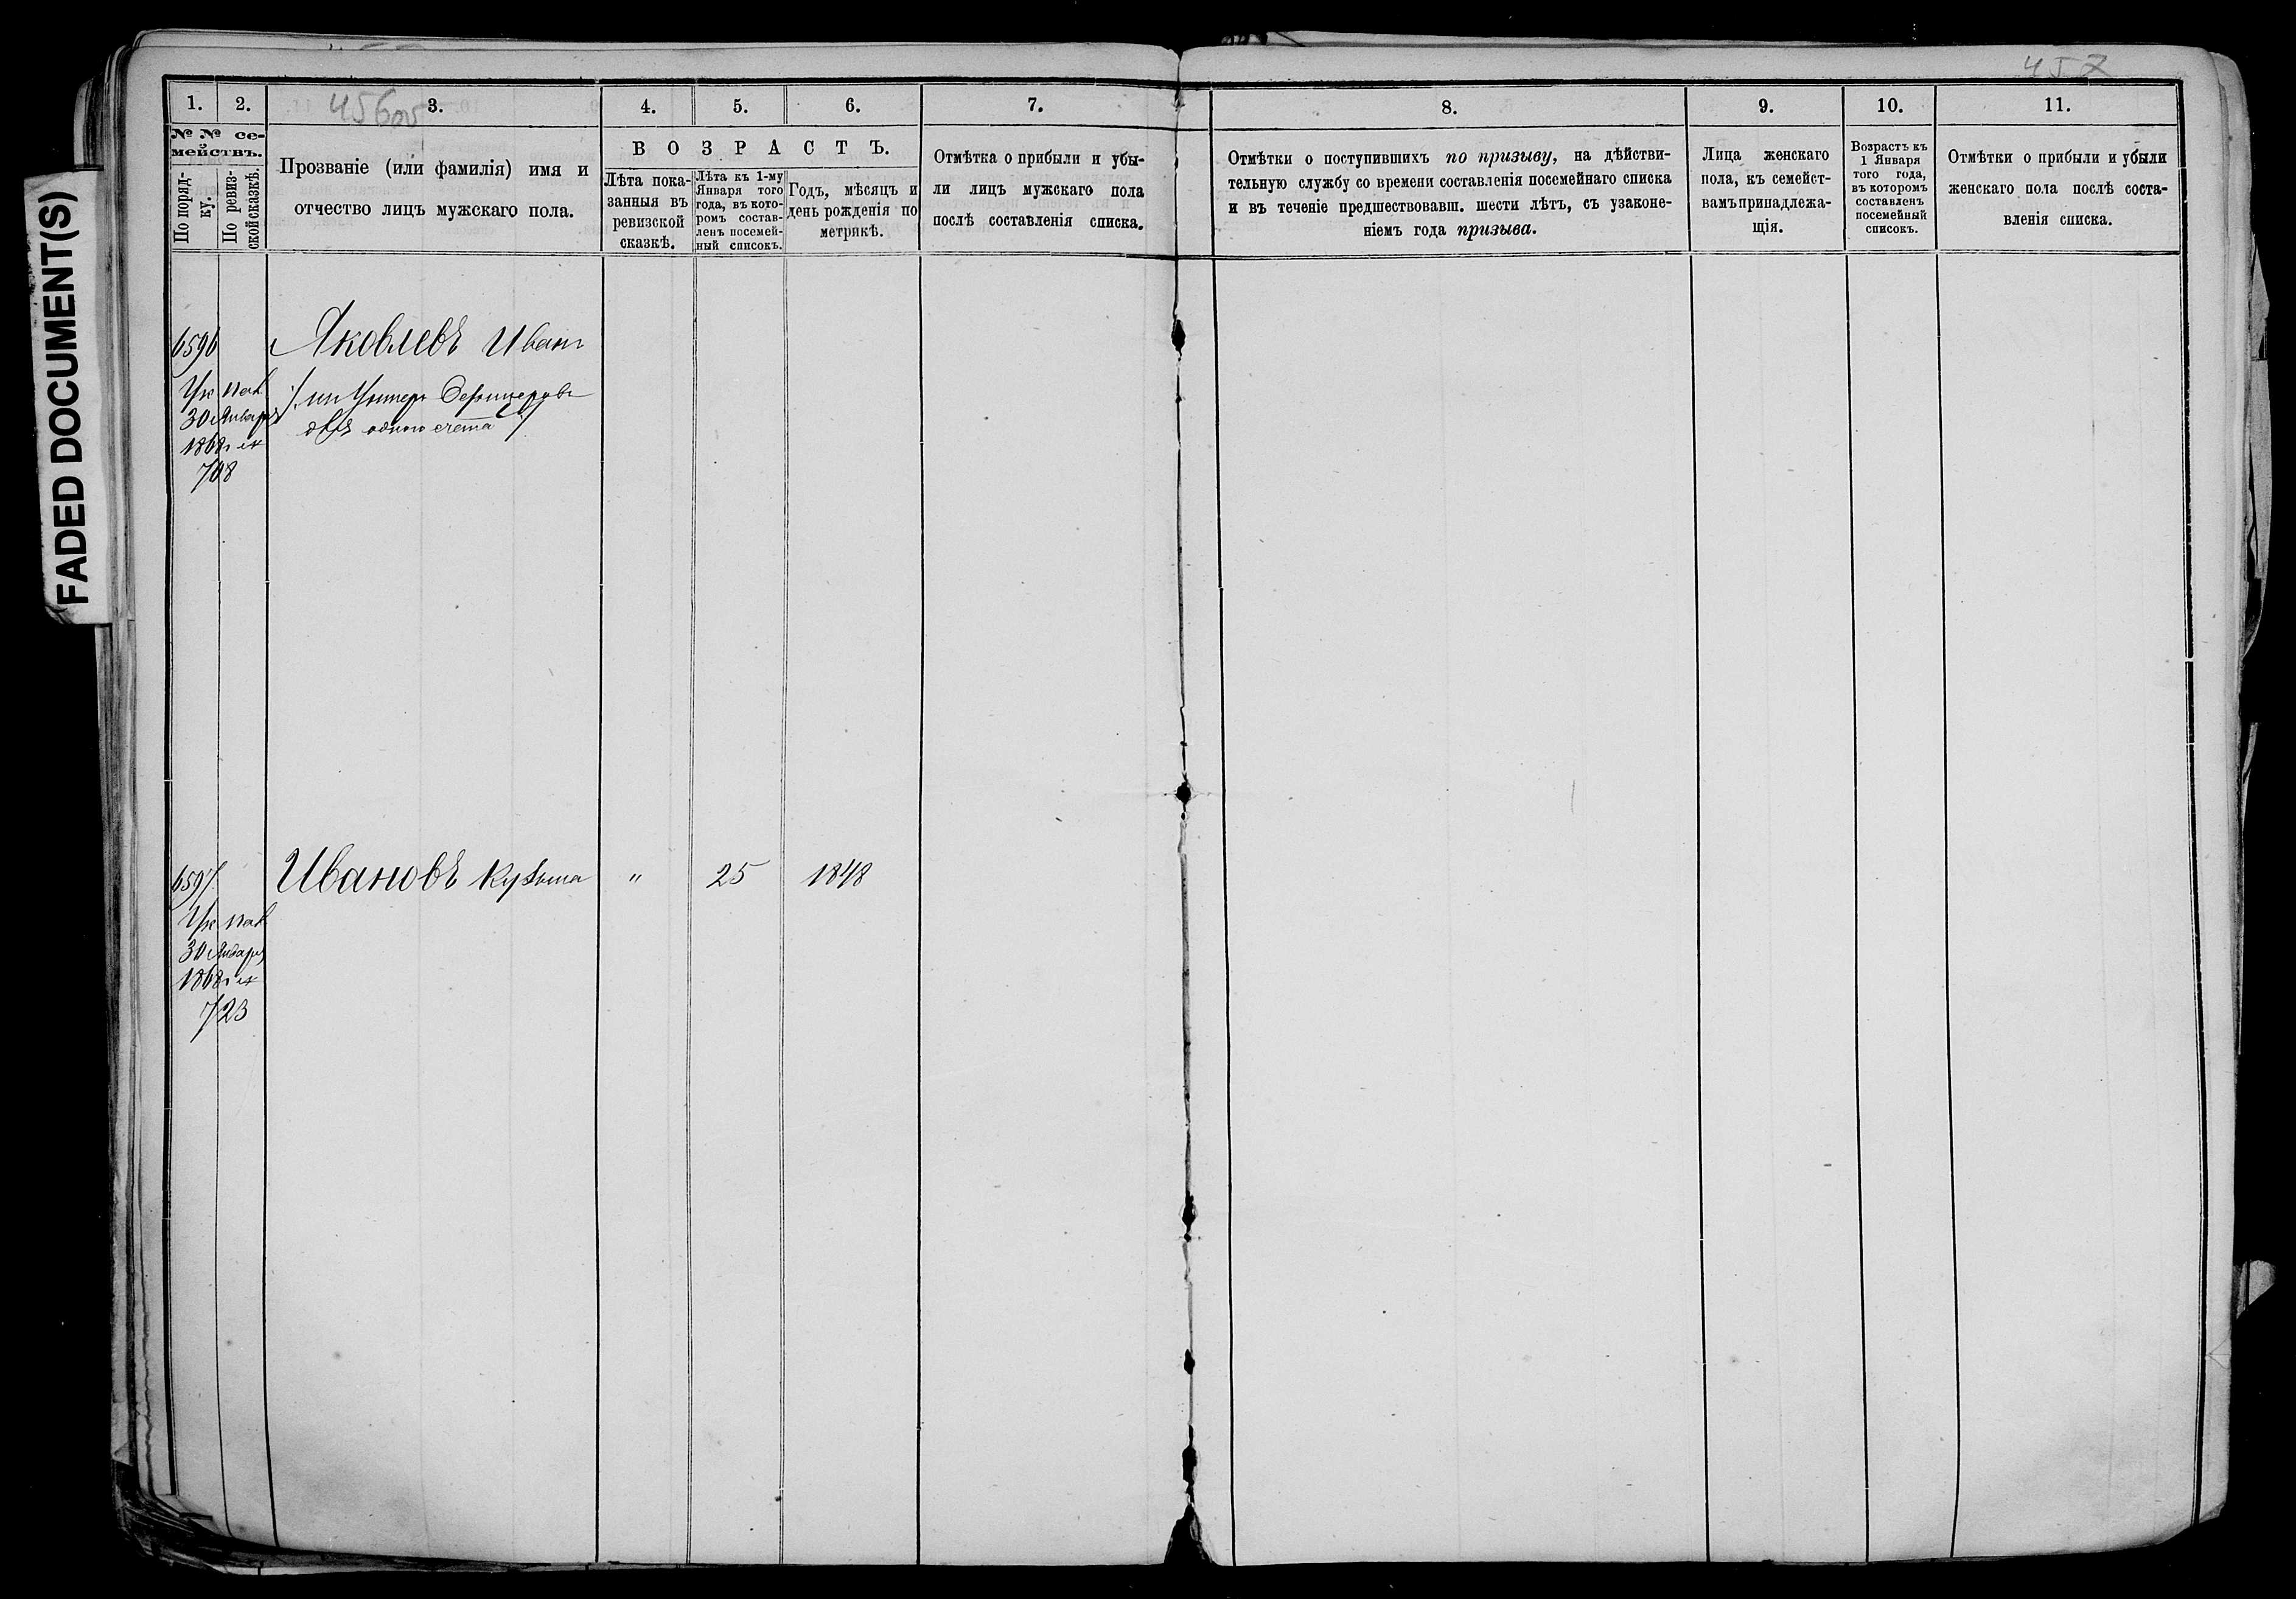 FADED DOCUMENT(S)
456об
457
1.
2.
3.
4.
5.
6.
7.
8.
9.
10.
11.
№ № се-
мействъ.
По поряд-
ку.
По ревиз-
ской сказкѣ.
Прозваніе (или фамилія) имя и
отчество лицъ мужскаго пола.
ВОЗРАСТЪ.
Лѣта пока-
занныя въ
ревизской
сказкѣ.
Лѣта къ 1-му
Января того
года, въ кото-
ромъ состав-
ленъ посемей-
ный списокъ.
Годъ, мѣсяцъ и
день рожденія по
метрикѣ.
Отмѣтка о прибыли и убы-
ли лицъ мужскаго пола
послѣ составленія списка.
Отмѣтки о поступившихъ по призыву, на дѣйстви-
тельную службу со времени составленія посемейнаго списка
и въ теченіе предшествовавш. шести лѣтъ, съ узаконе-
ніемъ года призыва.
Лица женскаго
пола, къ семейст-
вамъ принадлежа-
щія.
Возрастъ къ
1 Января
того года,
въ которомъ
составленъ
посемейный
списокъ.
Отмѣтки о прибыли и убыли
женскаго пола послѣ соста-
вленія списка.
6596
Яковлевъ Иванъ
Ук пал
30 Января
1868г №
708
изъ Унтеръ Офицеровъ
для одного счета
6597.
Ивановъ Кузьма " 25 1848
Ук пал
30 Января
1868г №
723